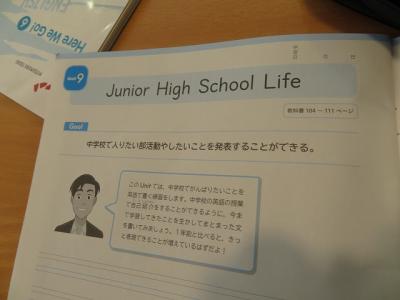 ENGLISH
Here We Go! 6
Unit 9
Junior High School Life
教科書 104 〜 111 ページ
Goal
中学校で入りたい部活動やしたいことを発表することができる。
この Unit では、中学校でがんばりたいことを
英語で書く練習をします。中学校の英語の授業
で自己紹介をすることができるように、今まで
学習してきたことを生かしてまとまった文
を書いてみましょう。1年前と比べると、きっ
と表現できることが増えているはずだよ！